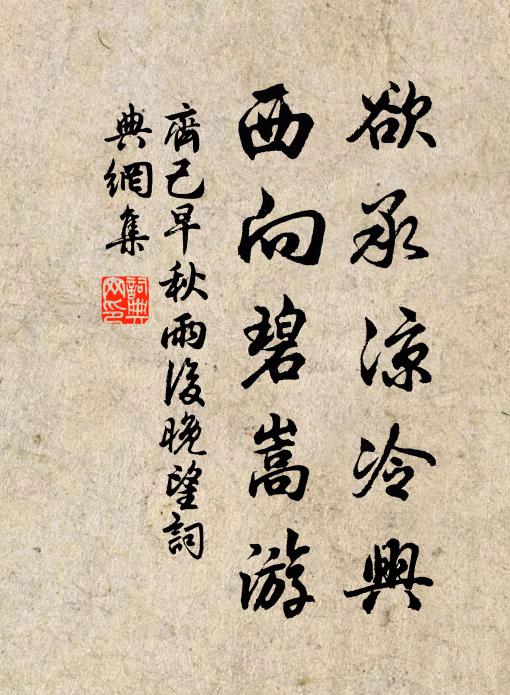 欲承涼冷興
西向碧嵩游
齊己早秋雨後晚望詞
典網集
詞典網印